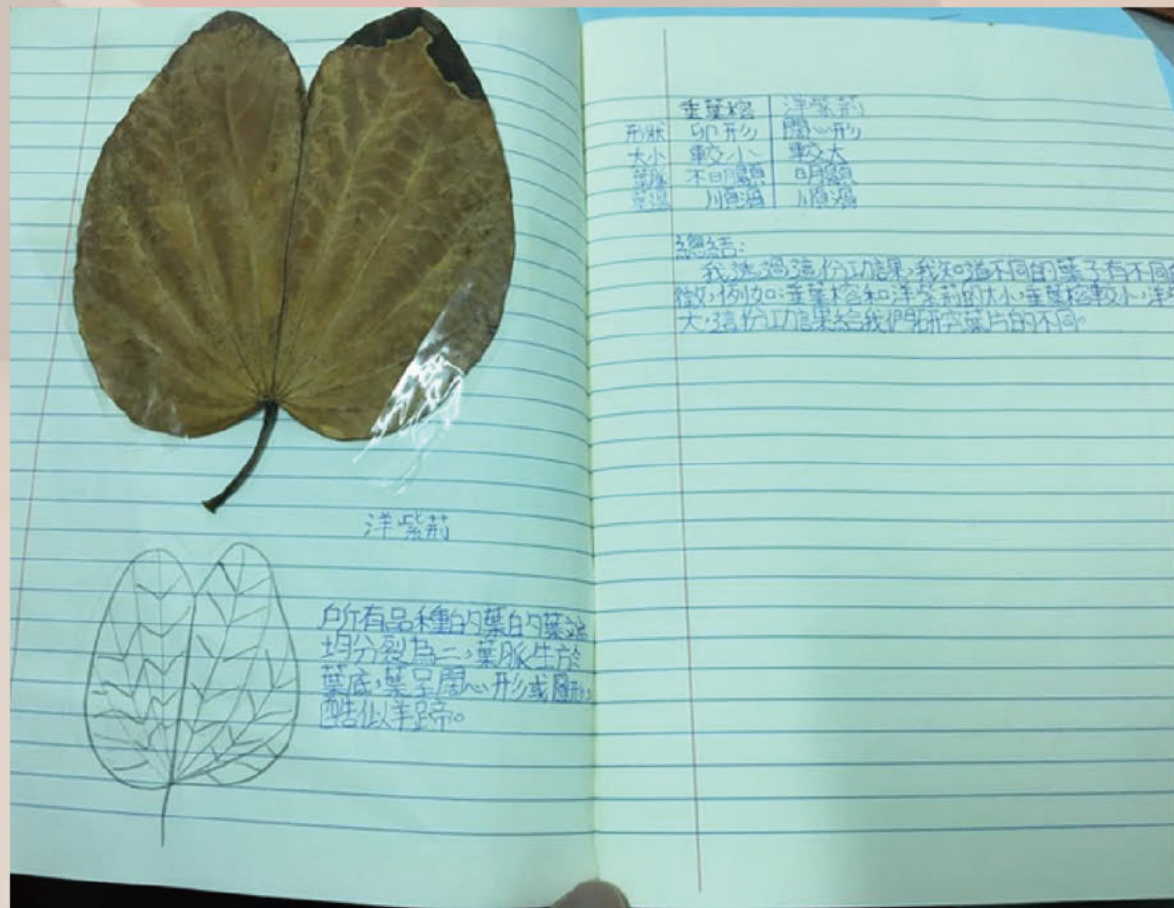 洋紫荊
所有品種的葉的葉端
均分裂為二，葉脈生於
葉底，葉呈闊心形或圓形，
酷似羊蹄。
垂葉榕 洋紫荊
形狀 卵形 闊心形
大小 較小 較大
葉脈 不明顯 明顯
葉邊 順滑 順滑
總結：
我透過這份功課，我知道不同的葉子有不同
徵，例如：垂葉榕和洋紫荊的大小，垂葉榕較小，洋
大，這份功課給我們研究葉片的不同。